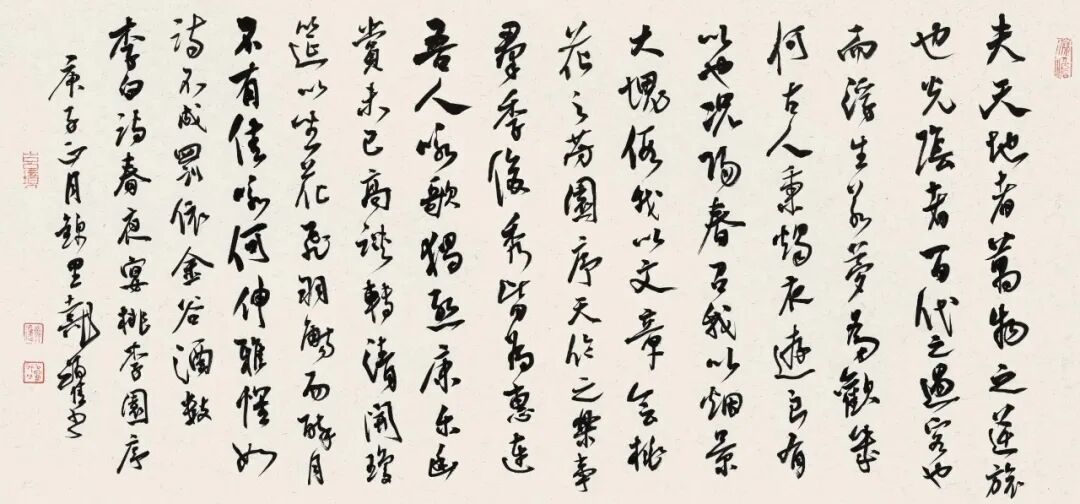 夫天地者萬物之逆旅
也光陰者百代之過客也
而浮生若夢為歡幾
何古人秉燭夜遊良有
以也況陽春召我以烟景
大塊假我以文章會桃
花之芳園序天倫之樂事
羣季俊秀皆為惠連
吾人咏歌獨慙康樂幽
賞未已高談轉清開瓊
筵以坐花飛羽觴而醉月
不有佳咏何伸雅懷如
詩不成罰依金谷酒數
李白詩春夜宴桃李園序
庚子正月錦里書